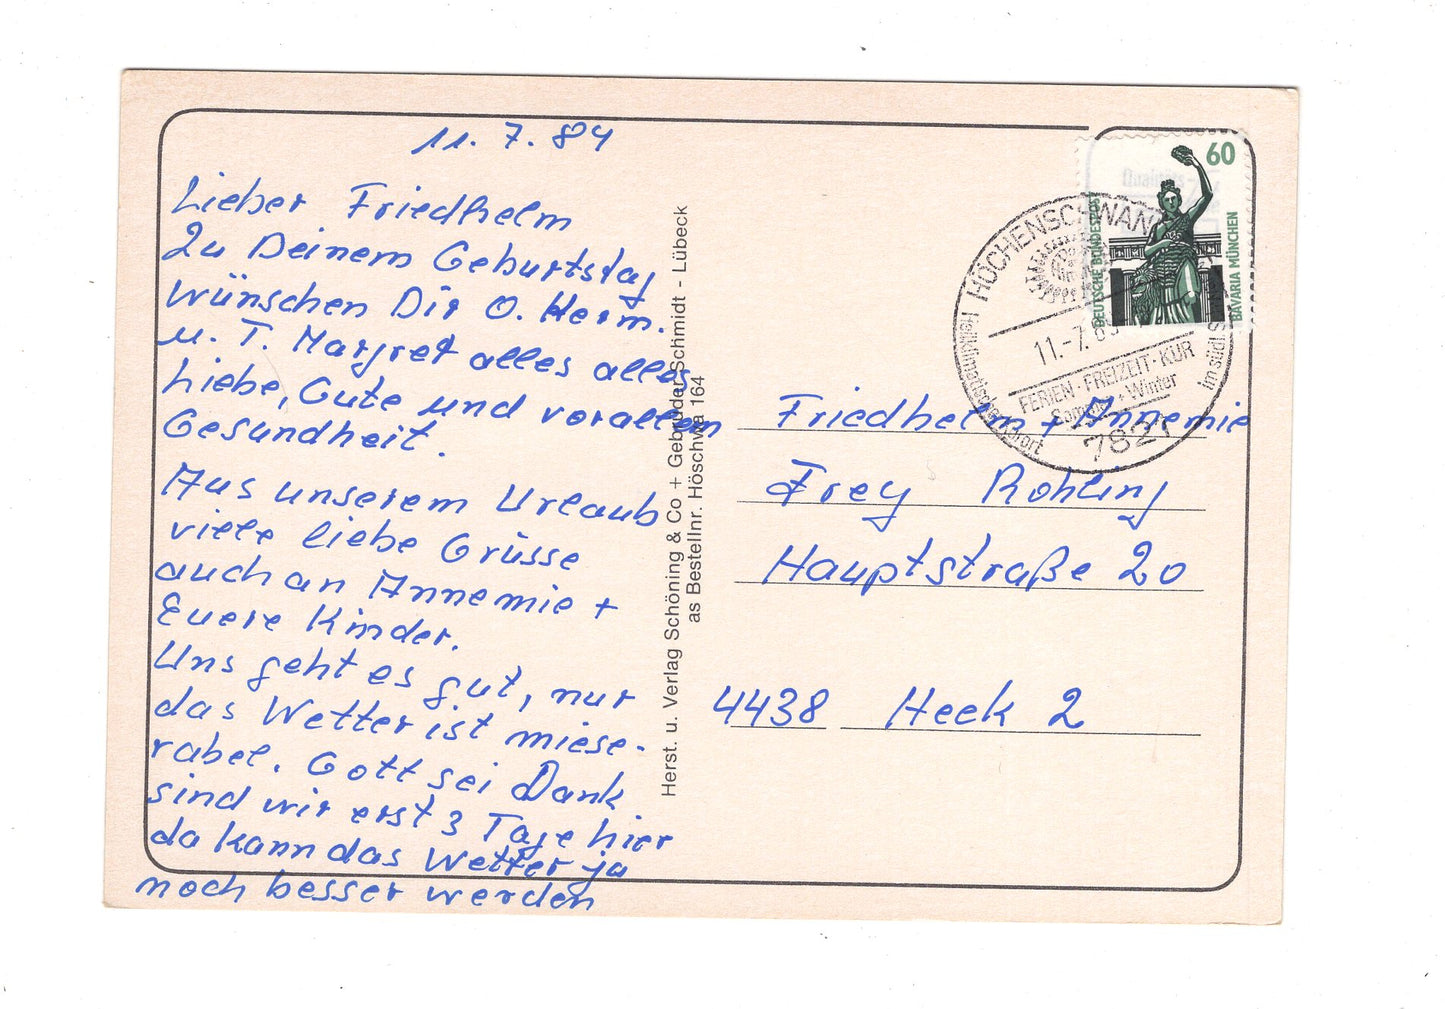 11. 7. 89
Lieber Friedhelm
Zu Deinem Geburtstag
Wünschen Dir O. Herm.
u. T. Margret alles alles
Liebe, Gute und vorallem
Gesundheit.
Aus unserem Urlaub
viele liebe Grüsse
auch an Annemie +
Euere Kinder.
Uns geht es gut, nur
das Wetter ist miese-
rabel. Gott sei Dank
sind wir erst 3 Tage hier
da kann das Wetter ja
noch besser werden
Herst. u. Verlag Schöning & Co + Gebrüder Schmidt - Lübeck
as Bestellnr. Höschwa 164
60
DEUTSCHE BUNDESPOST
BAVARIA MÜNCHEN
HÖCHENSCHWAND
11.-7. 89
FERIEN · FREIZEIT · KUR
Sommer + Winter
7821
Heilklimatischer Kurort
im südl. S
Friedhelm + Annemie
Frey Rohling
Hauptstraße 20
4438 Heek 2